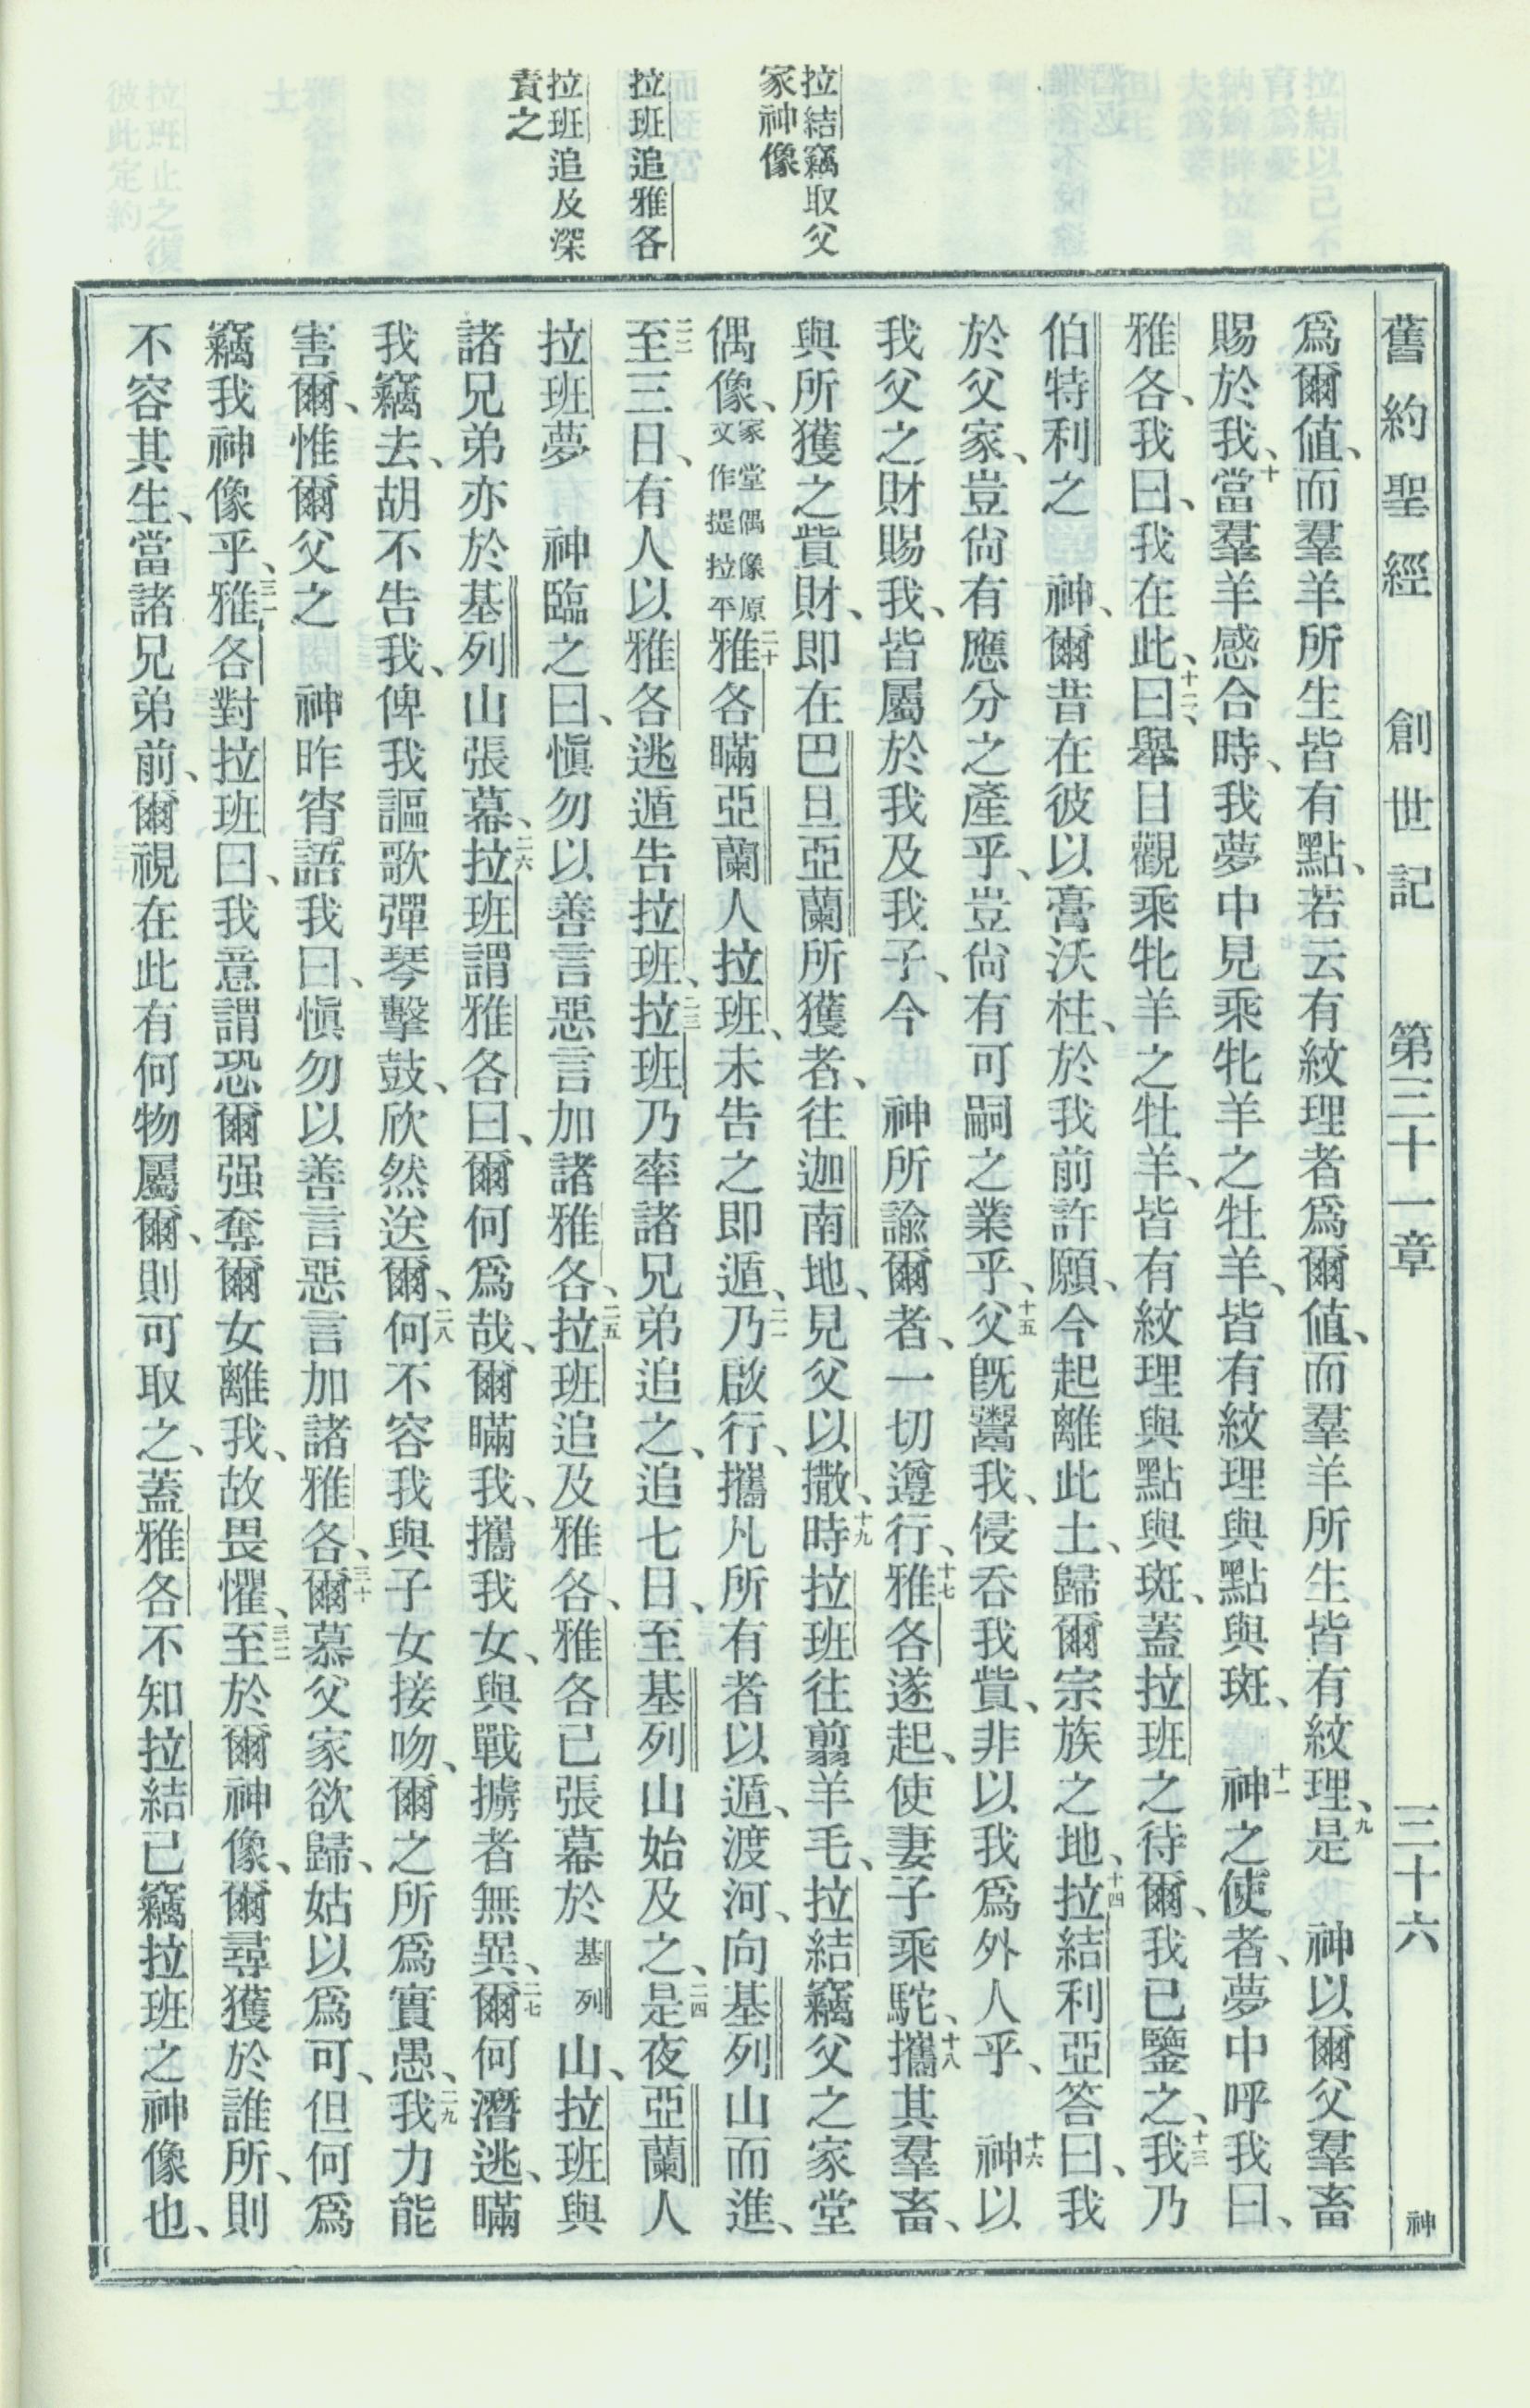 舊約聖經　創世記　第三十一章　三十六　神
拉結竊取父
家神像
拉班追雅各
拉班追及深
責之
爲爾值、而羣羊所生皆有點、若云有紋理者爲爾值、而羣羊所生皆有紋理、九是　神以爾父羣畜
賜於我、十當羣羊感合時、我夢中見乘牝羊之牡羊、皆有紋理與點與斑、十一神之使者、夢中呼我曰、
雅各、我曰、我在此、十二曰、舉目觀乘牝羊之牡羊、皆有紋理與點與斑、蓋拉班之待爾、我已鑒之、十三我乃
伯特利之　神、爾昔在彼以膏沃柱、於我前許願、今起離此土、歸爾宗族之地、十四拉結利亞答曰、我
於父家、豈尙有應分之產乎、豈尙有可嗣之業乎、十五父旣鬻我、侵吞我貲、非以我爲外人乎、十六神以
我父之財賜我、皆屬於我及我子、今　神所諭爾者、一切遵行、十七雅各遂起、使妻子乘駝、十八攜其羣畜、
與所獲之貲財、即在巴旦亞蘭所獲者、往迦南地、見父以撒、十九時拉班往翦羊毛、拉結竊父之家堂
偶像、家堂偶像原文作提拉平二十雅各瞞亞蘭人拉班、未告之即遁、二一乃啟行、攜凡所有者以遁、渡河、向基列山而進、
二二至三日、有人以雅各逃遁告拉班、二三拉班乃率諸兄弟追之、追七日、至基列山始及之、二四是夜亞蘭人
拉班夢　神臨之曰、愼勿以善言惡言加諸雅各、二五拉班追及雅各、雅各已張幕於基列山、拉班與
諸兄弟亦於基列山張幕、二六拉班謂雅各曰、爾何爲哉、爾瞞我、攜我女、與戰擄者無異、二七爾何潛逃、瞞
我竊去、胡不告我、俾我謳歌彈琴擊鼓、欣然送爾、二八何不容我與子女接吻、爾之所爲實愚、二九我力能
害爾、惟爾父之　神昨宵語我曰、愼勿以善言惡言加諸雅各、三十爾慕父家欲歸、姑以爲可、但何爲
竊我神像乎、三一雅各對拉班曰、我意謂恐爾强奪爾女離我、故畏懼、三二至於爾神像、爾尋獲於誰所、則
不容其生、當諸兄弟前、爾視在此有何物屬爾、則可取之、蓋雅各不知拉結已竊拉班之神像也、